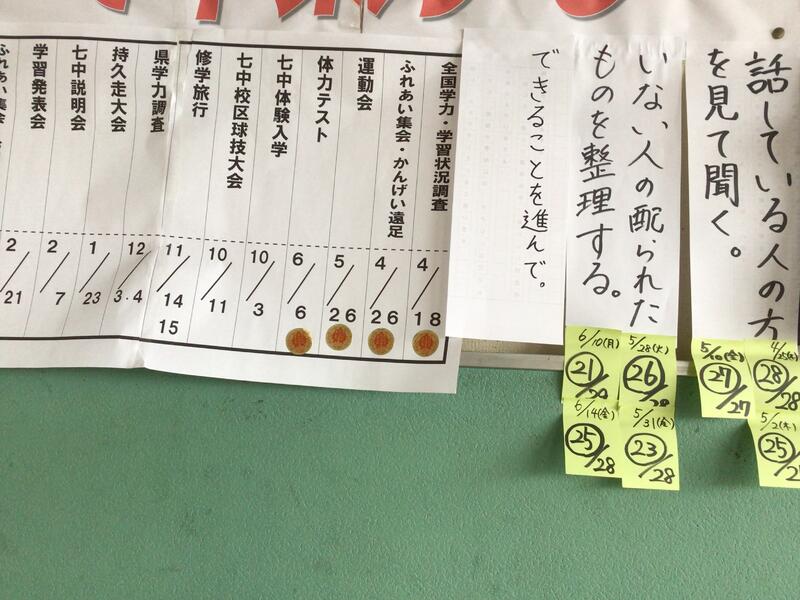 話している人の方
を見て聞く。
4/25(木)
28/28
5/2(木)
25/2
5/10(金)
27/27
いない人の配られた
ものを整理する。
5/28(火)
26/28
5/31(金)
23/28
6/10(月)
21
6/14(金)
25/28
できることを進んで。
全国学力・学習状況調査 4/18
ふれあい集会・かんげい遠足 4/26
運動会 5/26
体力テスト 6/6
七中体験入学 10/3
七中校区球技大会 10/11
修学旅行 11/14 15
県学力調査 12/3.4
持久走大会 1/23
七中説明会 2/7
学習発表会 2/21
ふれあい集会